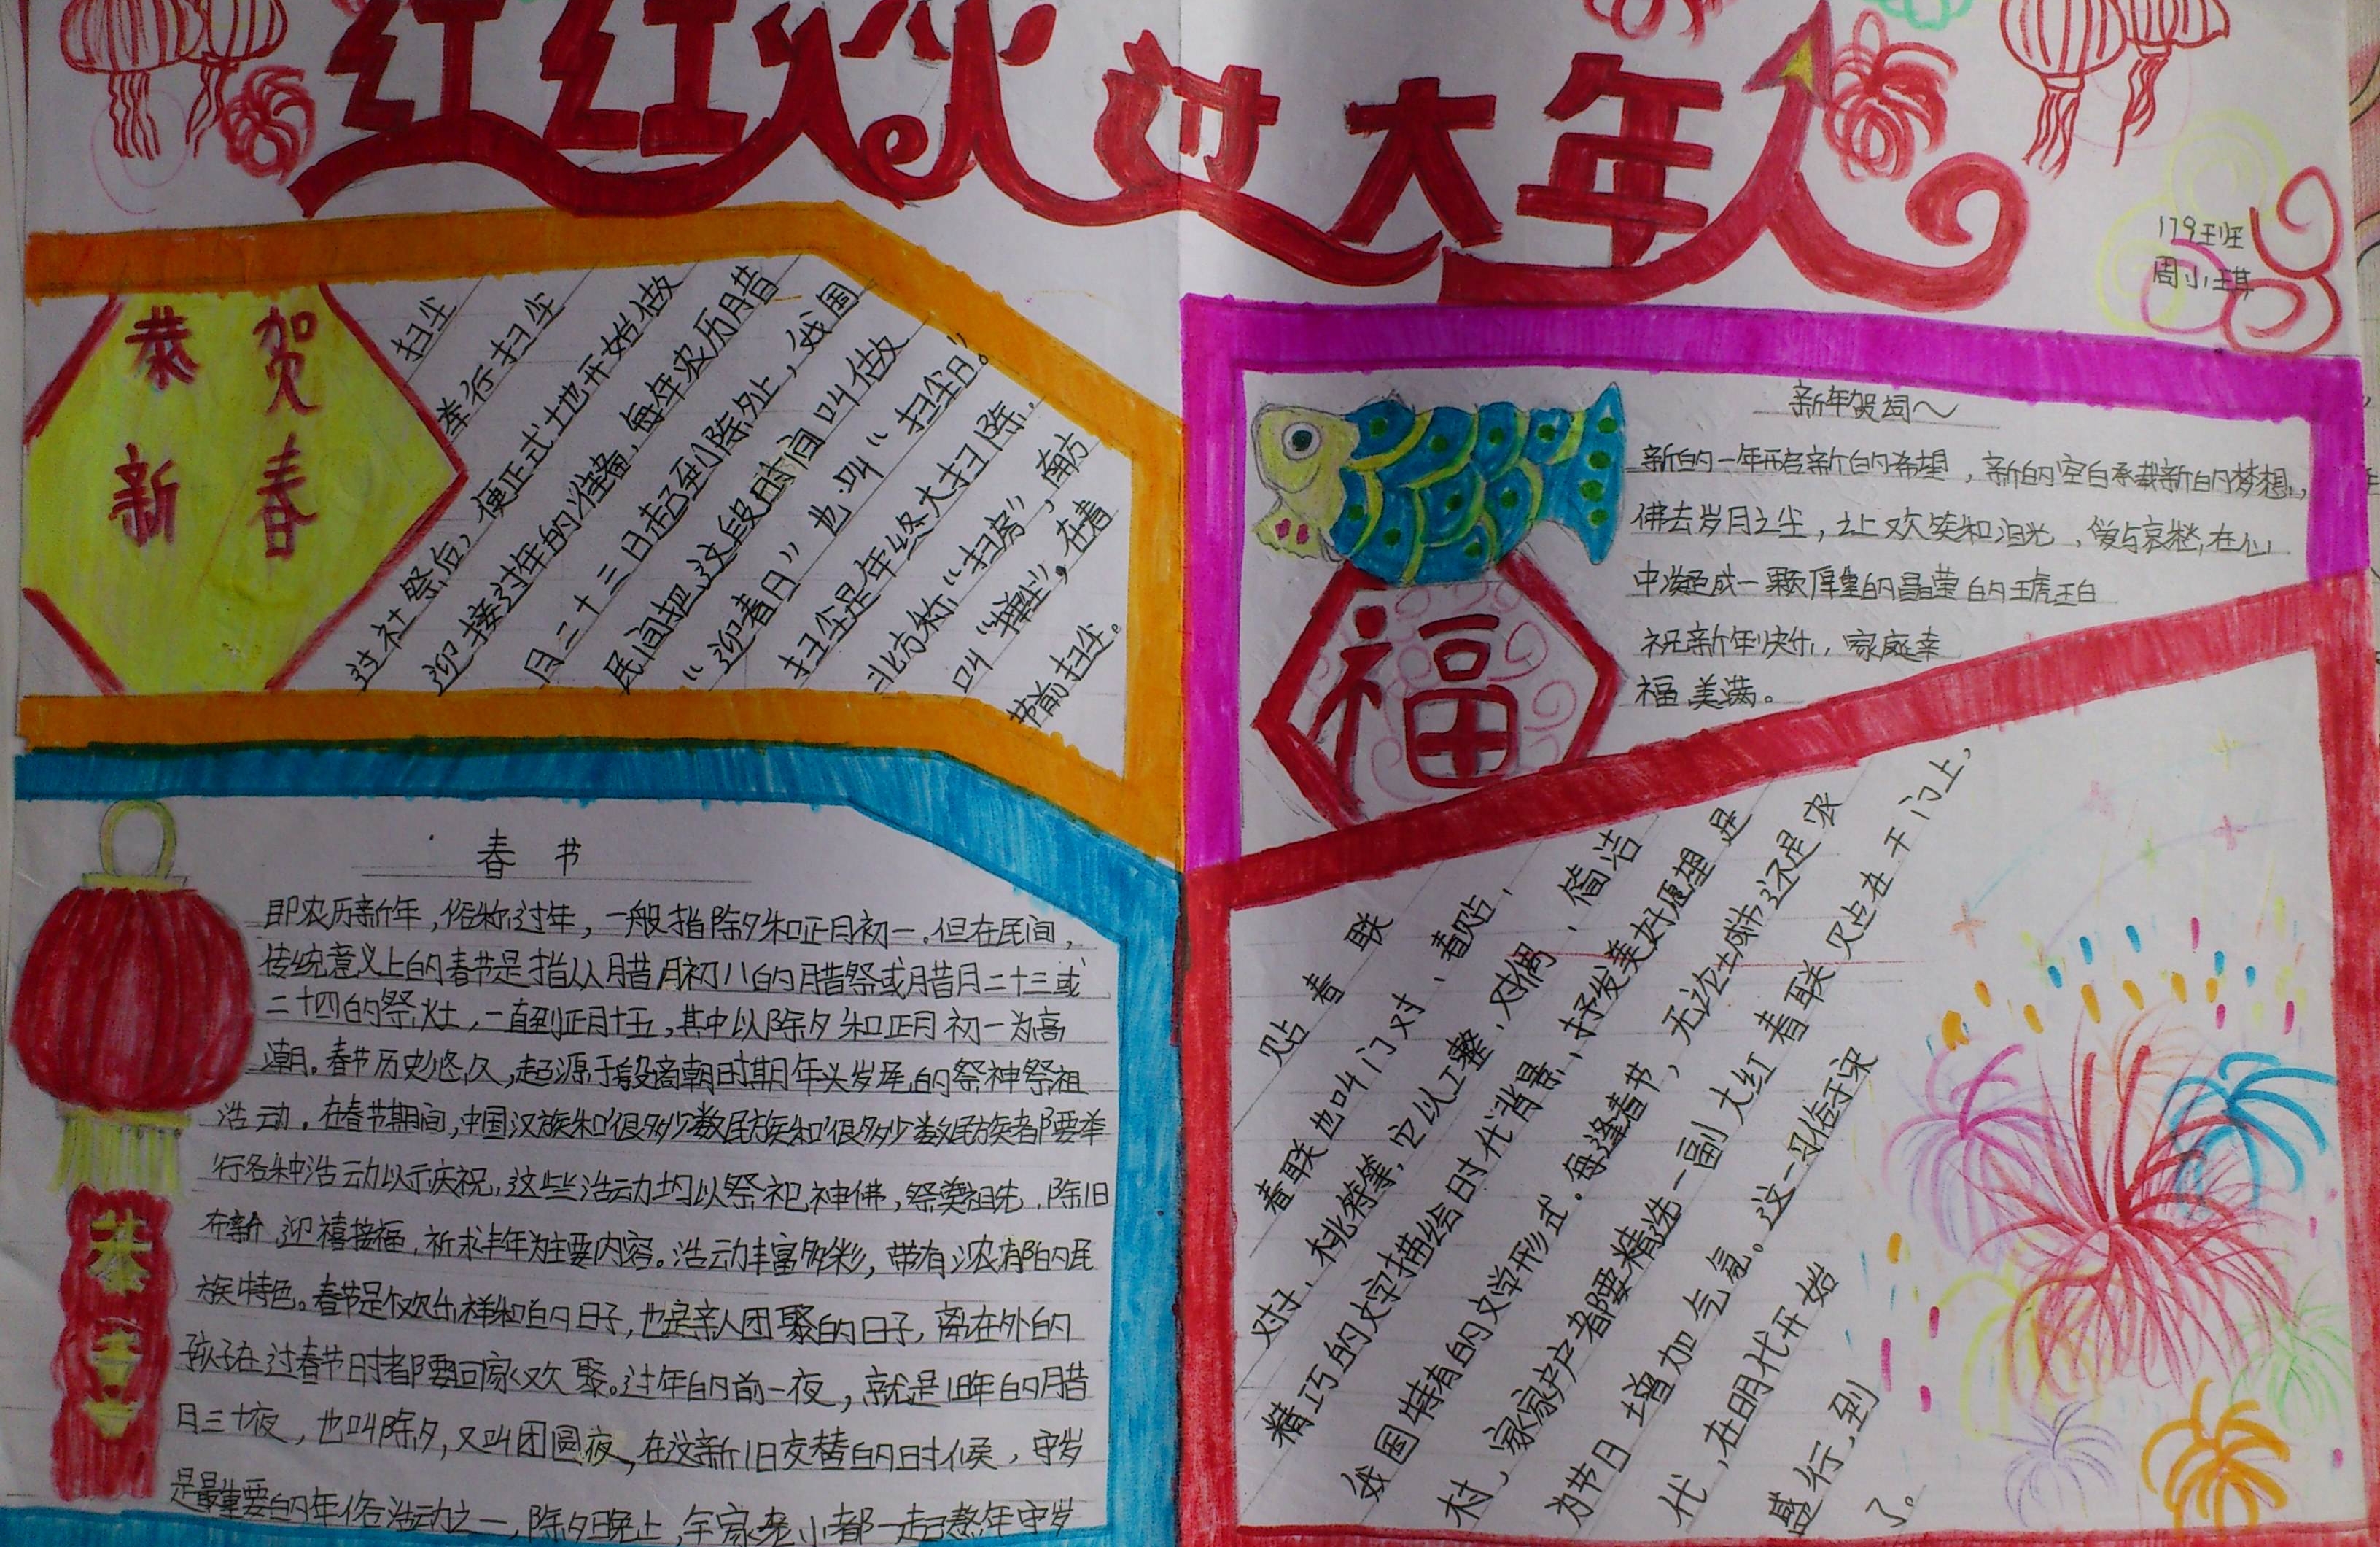 红红火火过大年
179班
周小琪
恭贺
新春
扫尘
举行扫尘
过社祭后，便正式地开始做
迎接过年的准备，每年农历月昔
月二十三日起到除夕止，我国
民间把这段时间叫做
“迎春日”也叫“扫尘日”。
扫尘是年终大扫除，
北方称“扫房”，南方
叫“掸尘”，在春
节前扫尘。
新年贺词～
新的一年开启新的希望，新的空白承载新的梦想，
佛去岁月之尘，让欢笑和泪光，爱与哀愁，在心
中凝成一颗厚重的晶莹的琥珀
祝新年快乐，家庭幸
福美满。
福
春节
即农历新年，俗称过年，一般指除夕和正月初一。但在民间，
传统意义上的春节是指从腊月初八的腊祭或腊月二十三或
二十四的祭灶，一直到正月十五，其中以除夕和正月初一为高
潮。春节历史悠久，起源于殷商朝时期年头岁尾的祭神祭祖
活动。在春节期间，中国汉族和很多少数民族和很多少数民族都要举
行各种活动以示庆祝，这些活动均以祭祀神佛，祭奠祖先，除旧
布新，迎禧接福，祈求丰年为主要内容。活动丰富多彩，带有浓郁的民
族特色。春节是欢乐祥和的日子，也是亲人团聚的日子，离在外的
孩子在过春节时都要回家欢聚。过年的前一夜，就是旧年的腊
月三十夜，也叫除夕，又叫团圆夜，在这新旧交替的时候，守岁
是最重要的年俗活动之一，除夕晚上，全家老小都一起熬年守岁
恭喜
贴春联
春联也叫门对、春贴、
对子、桃符等，它以工整、对偶、简洁
精巧的文字描绘时代背景，抒发美好愿望是
我国特有的文学形式。每逢春节，无论城市还是农
村，家家户户都要精选一副大红春联贴在于门上，
为节日增加气氛。这一习俗于宋
代，在明代开始
盛行，到
了。